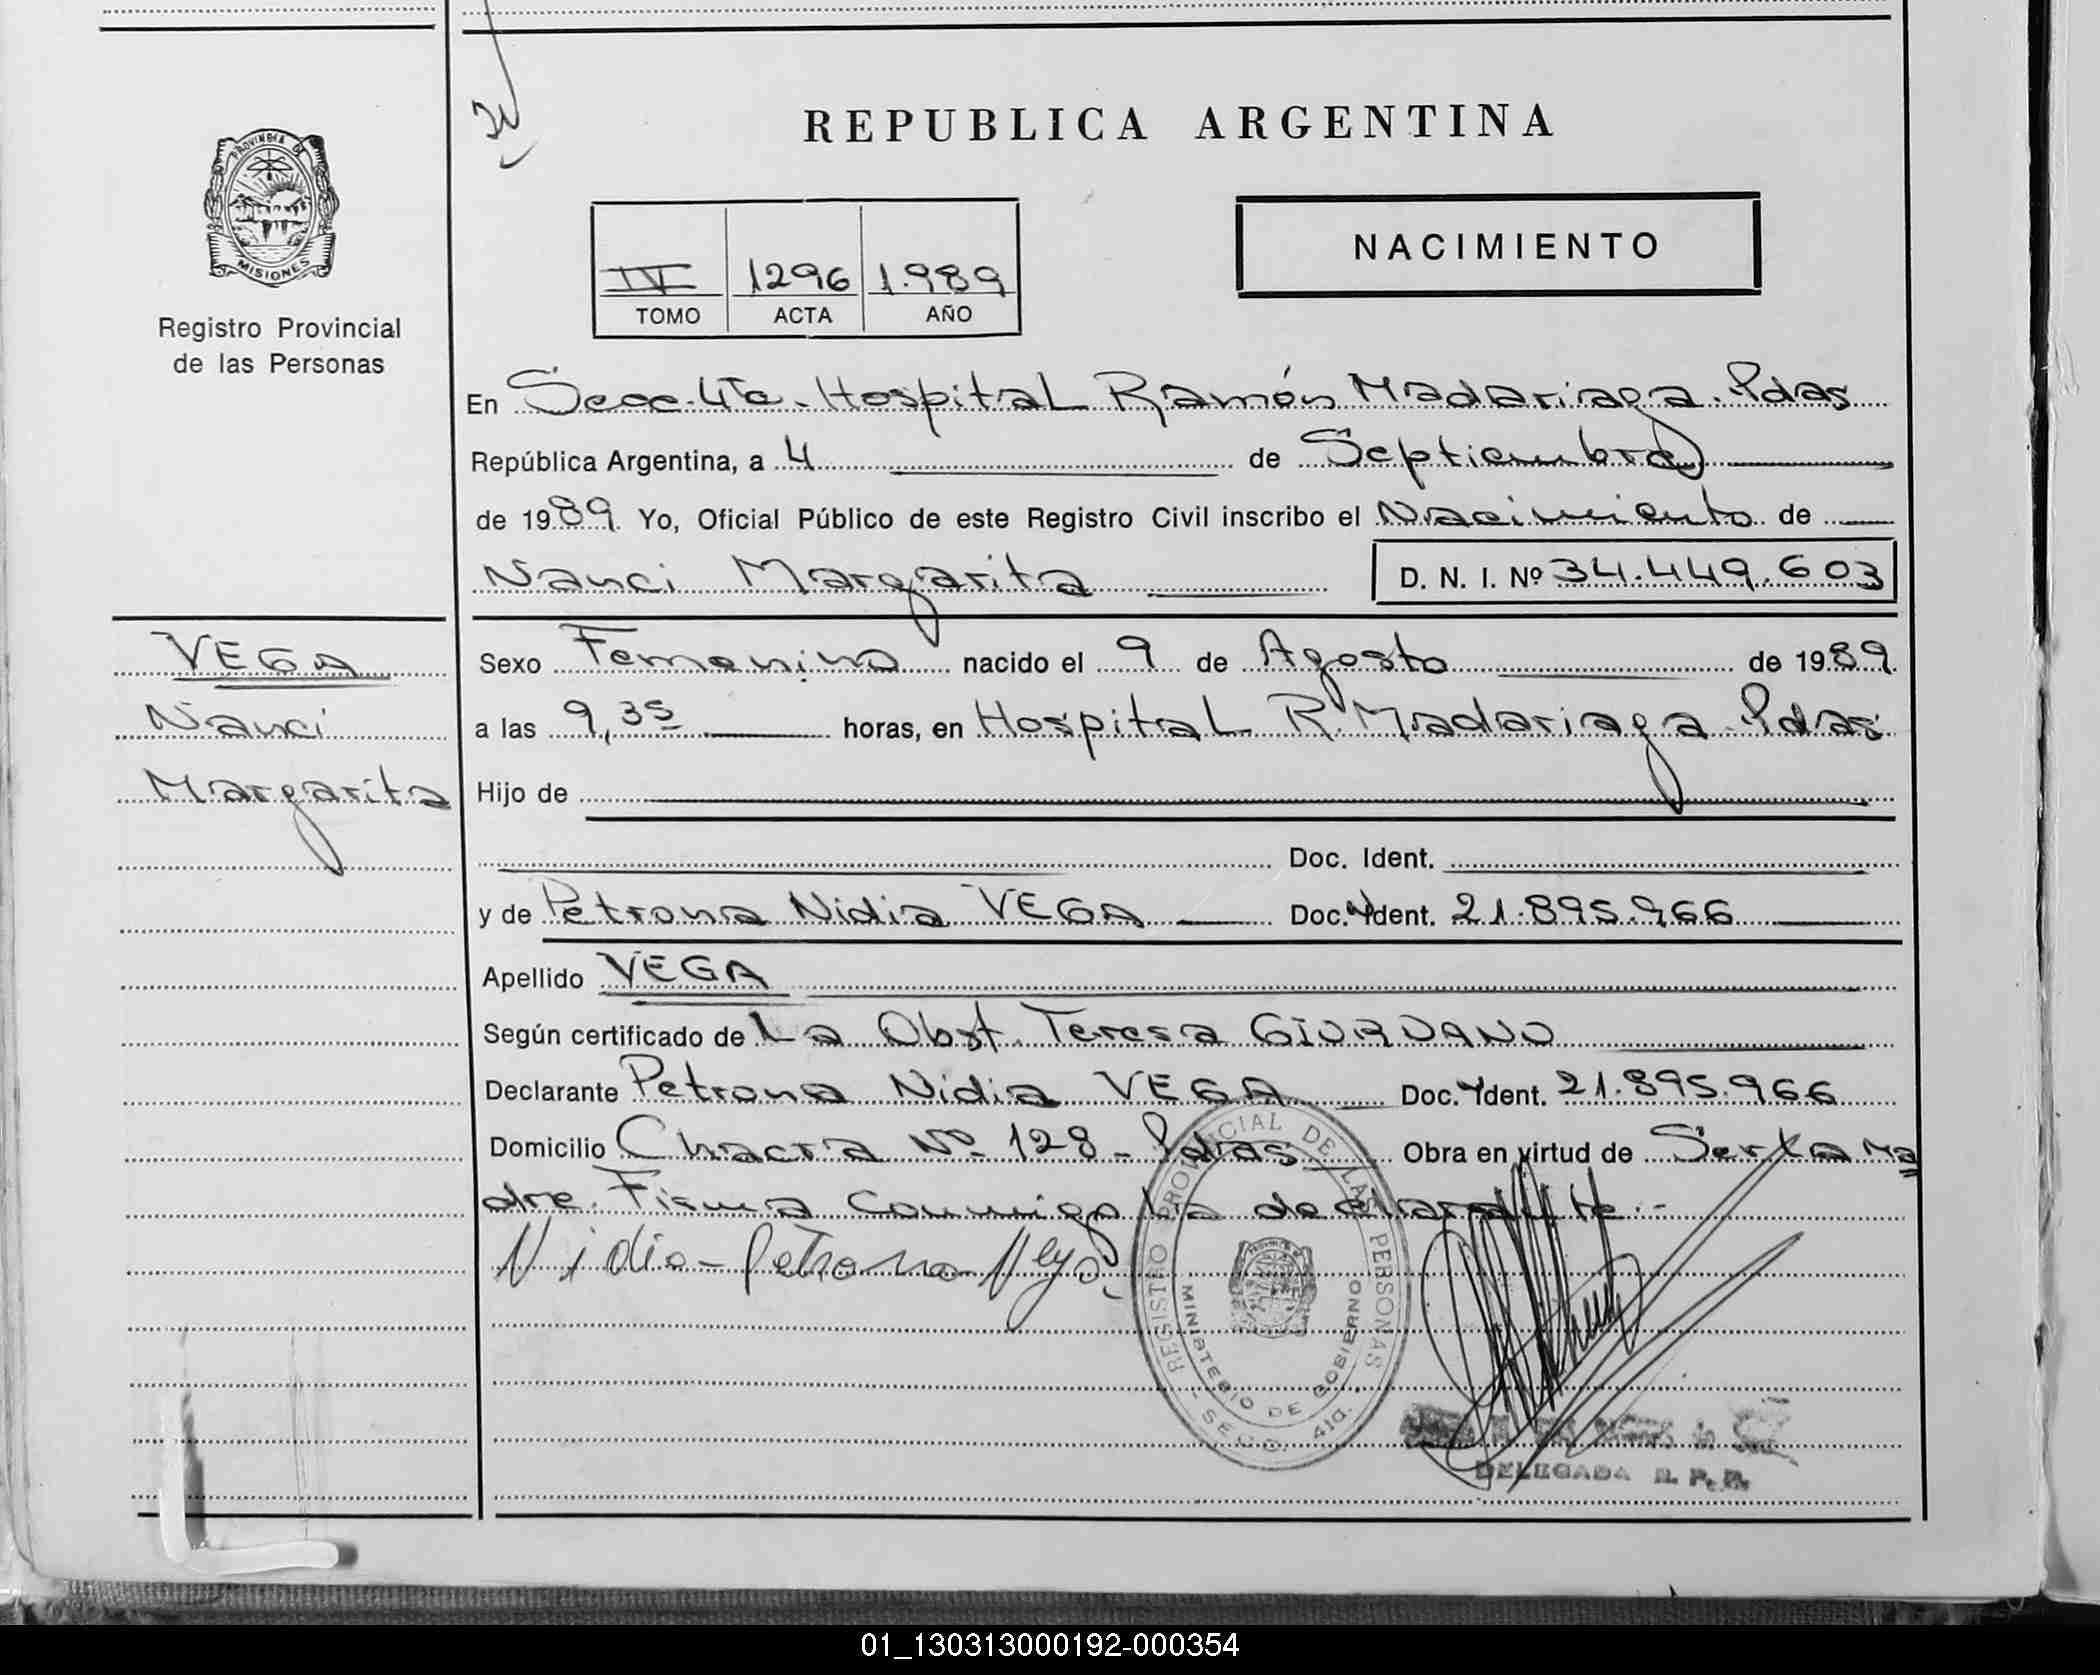 REPUBLICA ARGENTINA
PROVINCIA DE
MISIONES
Registro Provincial
de las Personas
NACIMIENTO
IV 1296 1.989
TOMO ACTA AÑO
En Secc. 4ta. Hospital Ramón Madariaga. Pdas
República Argentina, a 4 de Septiembre
de 1989. Yo, Oficial Público de este Registro Civil inscribo el Nacimiento de
Nanci Margarita D. N. I. Nº 34.449.603
VEGA
Nanci
Margarita
Sexo Femenino nacido el 9 de Agosto de 1989.
a las 9,35 horas, en Hospital R. Madariaga. Pdas.
Hijo de
Doc. Ident.
y de Petrona Nidia VEGA Doc. Ident. 21.895.966
Apellido VEGA
Según certificado de La Obst. Teresa GIORDANO
Declarante Petrona Nidia VEGA Doc. Ident. 21.895.966
Domicilio Chacra Nº 128 - Pdas Obra en virtud de Ser la ma
dre. Firma conmigo la declarante.-
Nidia - Petrona Vega
REGISTRO PROVINCIAL DE LAS PERSONAS
MINISTERIO DE GOBIERNO
- SECC. 4ta. -
DELEGADA R. P. P.
01_130313000192-000354